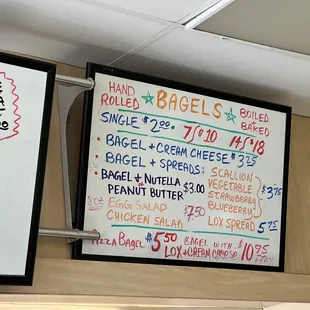 HAND ROLLED ☆ BAGELS ☆ BOILED BAKED
SINGLE $2.00 7/$10 14/$18
• BAGEL + CREAM CHEESE $3.25
• BAGEL + SPREADS:
SCALLION
VEGETABLE
STRAWBERRY
BLUEBERRY
$3.75
LOX SPREAD 5.75
• BAGEL + NUTELLA
PEANUT BUTTER
$3.00
8oz EGG SALAD
CHICKEN SALAD
$7.50
PIZZA BAGEL $5.50
BAGEL WITH LOX + CREAM CHEESE $10.75